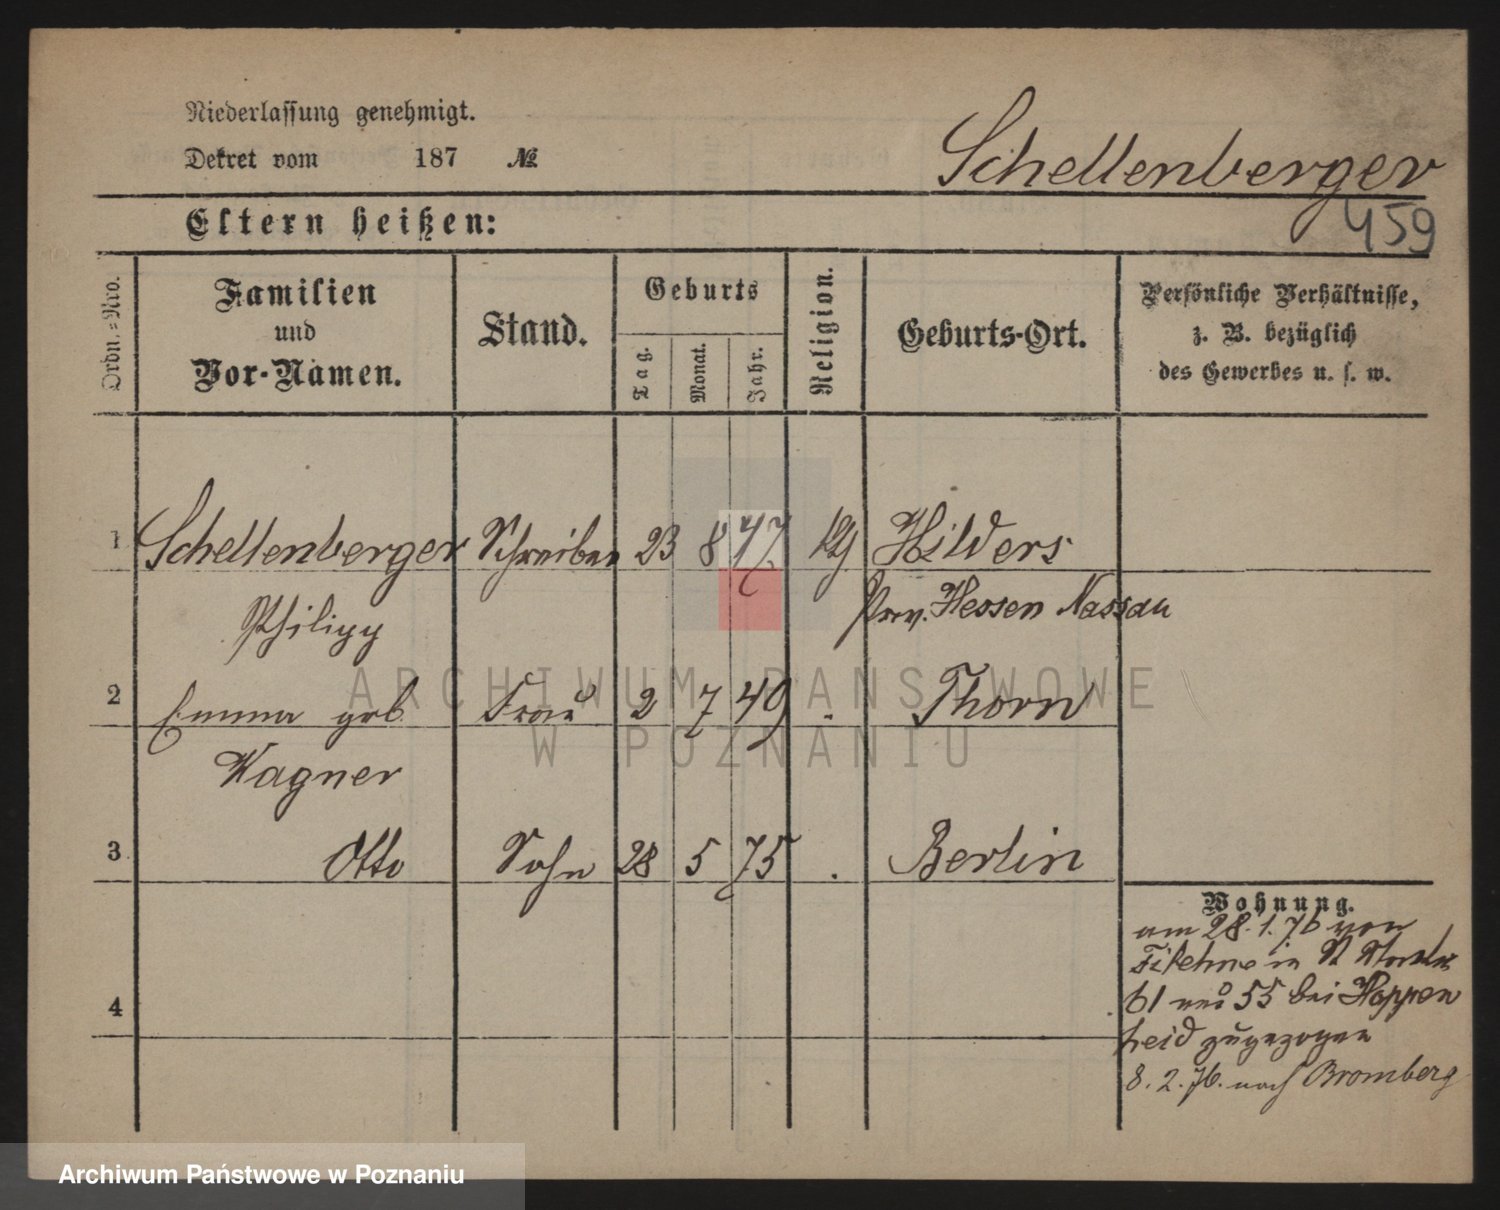 Niederlassung genehmigt.
Dekret vom 187 №
Schellenberger
459
Eltern heißen:
Ordn.=Nro.
Familien und Vor-Namen.
Stand.
Geburts
Tag.
Monat.
Jahr.
Religion.
Geburts-Ort.
Persönliche Verhältnisse,
z. B. bezüglich
des Gewerbes u. s. w.
1 Schellenberger Schreiber 23 8 47 Hilders
Philipp Prov. Hessen Nassau
2 Emma geb. Frau 2 7 49 . Thorn
Wagner
3 Otto Sohn 28 5 75 . Berlin
4
Wohnung.
am 28.1.76 von
Filehne in St
61 und 55 bei Hoppen
heid zugezogen
8.2.76. nach Bromberg
ARCHIWUM PAŃSTWOWE
W POZNANIU
Archiwum Państwowe w Poznaniu